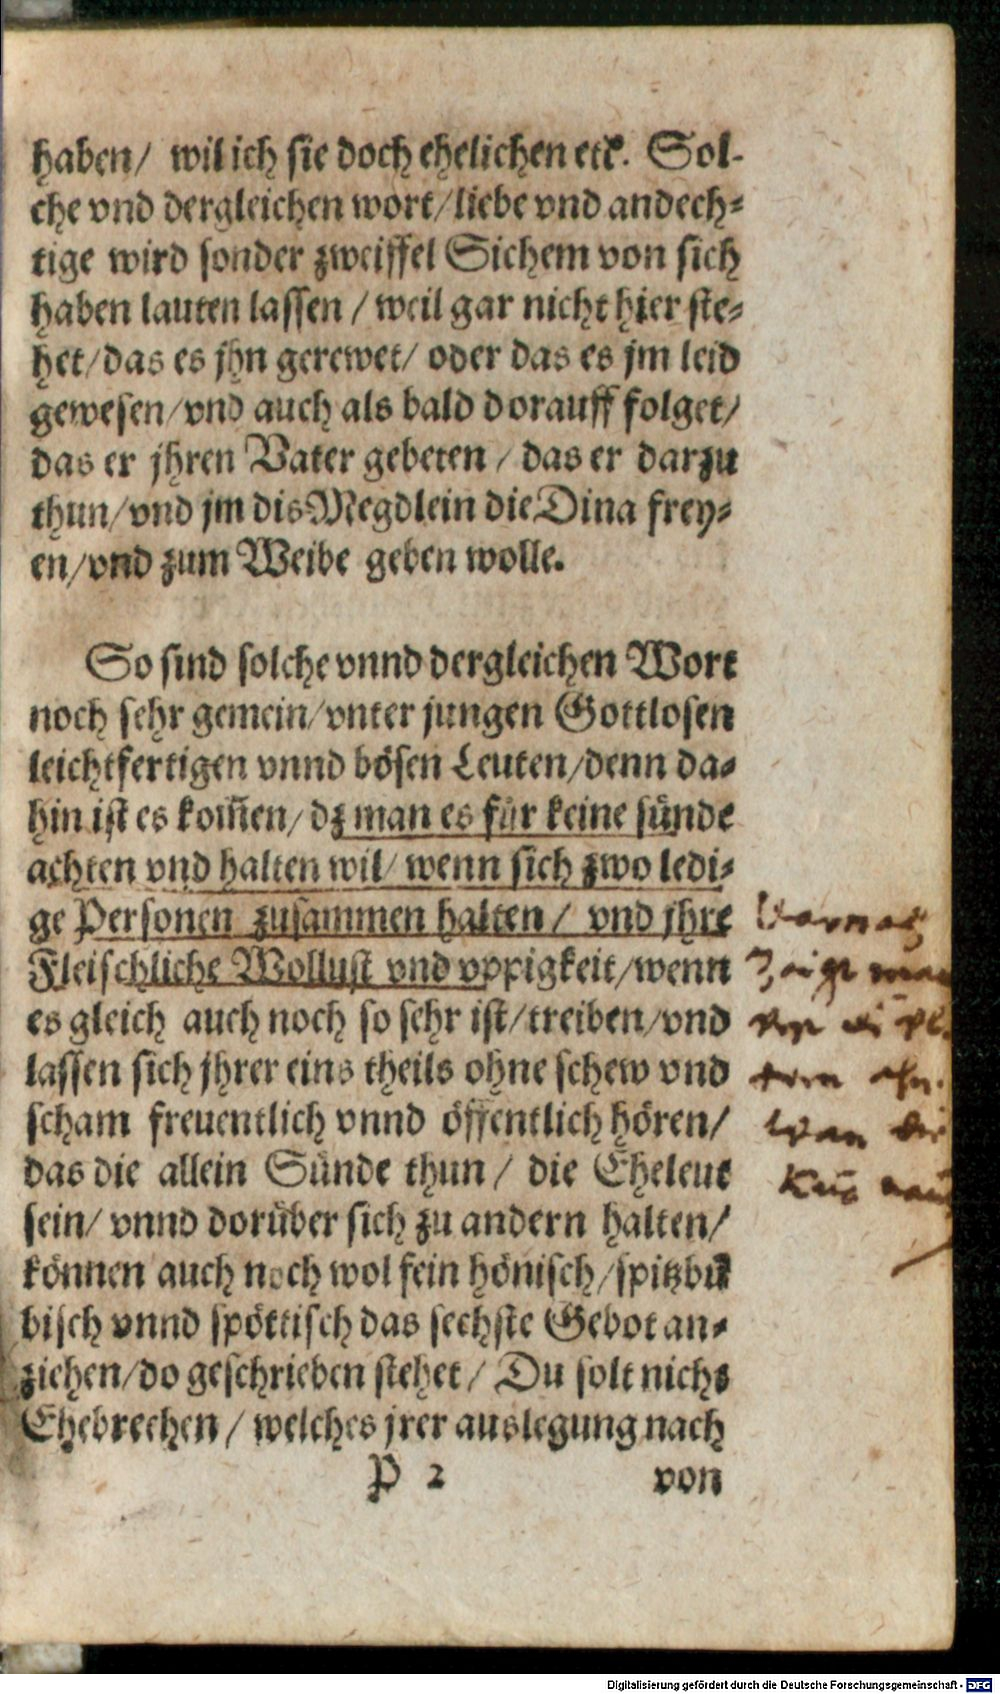 haben/ wil ich sie doch ehelichen etc. Sol-
che vnd dergleichen wort/liebe vnd andech-
tige wird sonder zweiffel Sichem von sich
haben lauten lassen / weil gar nicht hier ste-
het/das es jhn gerewet/ oder das es jm leid
gewesen/vnd auch als bald dorauff folget/
das er jhren Vater gebeten / das er darzu
thun/vnd jm dis Megdlein die Dina frey-
en/vnd zum Weibe geben wolle.
So sind solche vnnd dergleichen Wort
noch sehr gemein/vnter jungen Gottlosen
leichtfertigen vnnd bösen Leuten/denn da-
hin ist es kom̃en/ dz man es für keine sünde
achten vnd halten wil/ wenn sich zwo ledi-
ge Personen zusammen halten / vnd jhre
Fleischliche Wollust vnd vppigkeit/wenn
es gleich auch noch so sehr ist/treiben/vnd
lassen sich jhrer eins theils ohne schew vnd
scham freuentlich vnnd öffentlich hören/
das die allein Sünde thun / die Eheleut
sein/ vnnd dorüber sich zu andern halten/
können auch noch wol fein hönisch/spitzbü
bisch vnnd spöttisch das sechste Gebot an-
ziehen/do geschrieben stehet/ Du solt nicht
Ehebrechen / welches jrer auslegung nach
P 2 von
Digitalisierung gefördert durch die Deutsche Forschungsgemeinschaft - DFG